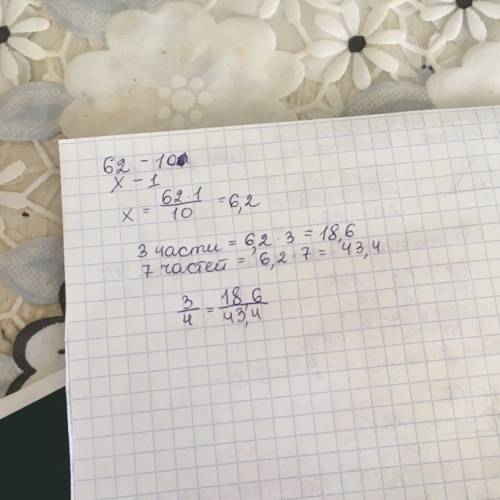 62 - 10
x - 1
x = 62·1/10 = 6,2
3 части = 6,2 · 3 = 18,6
7 частей = 6,2 · 7 = 43,4
3/4 = 18,6/43,4